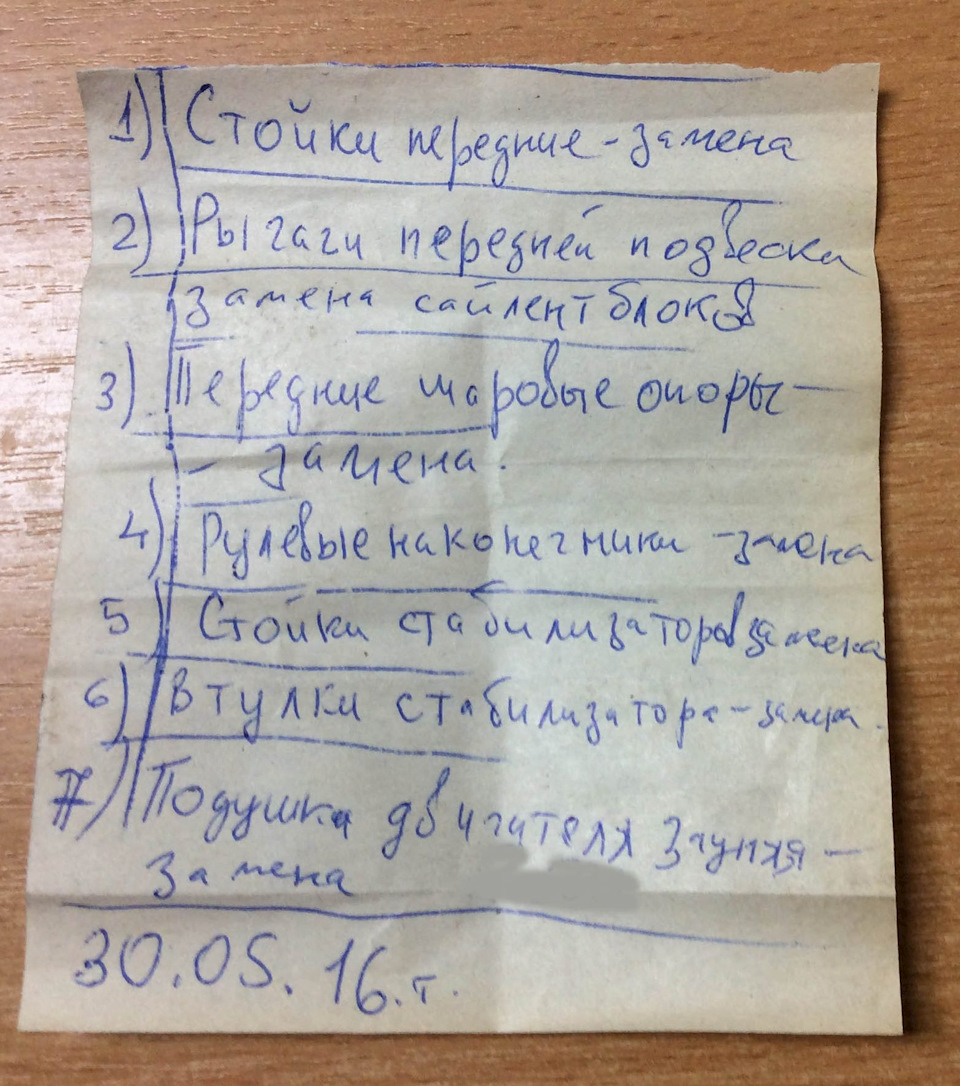 1) Стойки передние - замена
2) Рычаги передней подвески
замена сайлентблоков
3) Передние шаровые опоры -
- замена.
4) Рулевые наконечники - замена
5) Стойки стабилизаторов замена
6) Втулки стабилизатора - замена.
7) Подушка двигателя задняя -
замена
30.05.16.г.